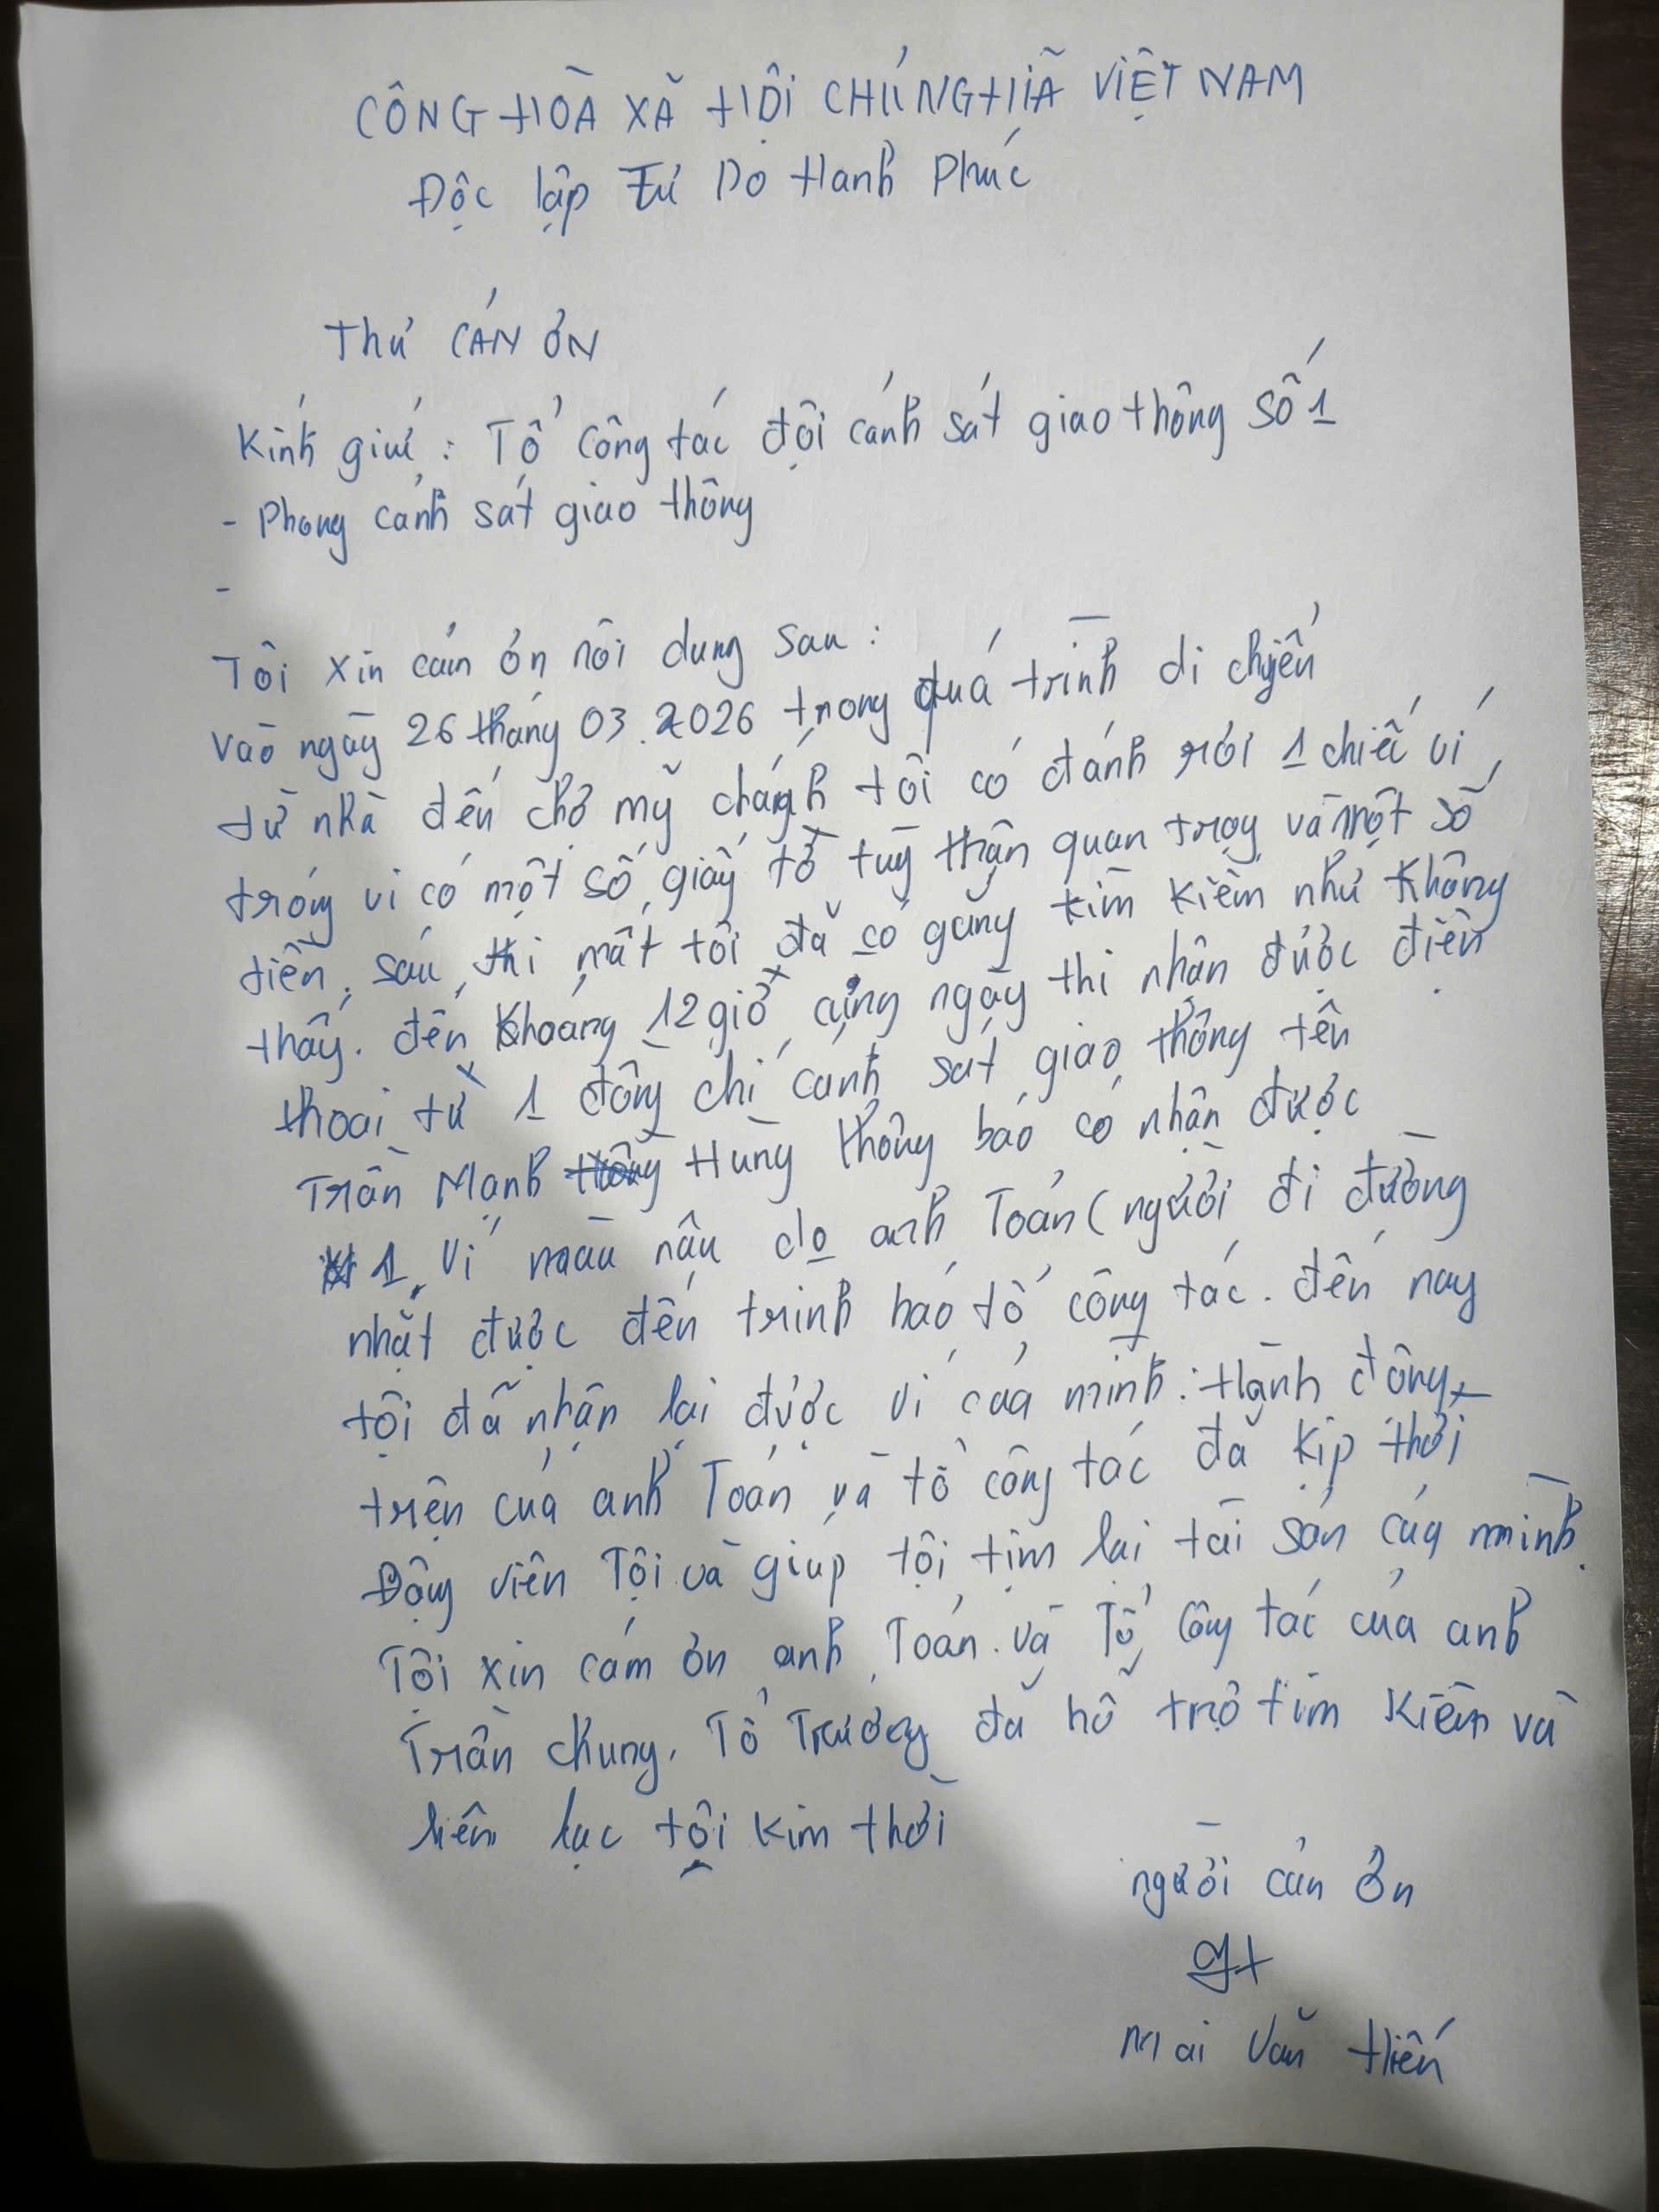 CÔNG HÒA XÃ HỘI CHỦ NGHĨA VIỆT NAM
Độc lập Tự Do Hanh Phúc
Thư CÁN ƠN
Kính gửi : Tổ công tác đội cảnh sát giao thông Số 1
- Phong cảnh sát giao thông
-
Tôi xin cản ơn nôi dung sau :
vào ngày 26 tháng 03.2026 trong quá trình di chyển
từ nhà đến chợ mỹ chánh tôi có đánh rới 1 chiếc ví
tróng ví có một số giấy tờ tuỳ thận quan trọy và một số
tiền, sau thi mất tôi đã có gắng tìm kiếm như không
thấy. đến khoảng 12 giờ cùng ngày thi nhân được điện
thoai từ 1 đồng chí cảnh sát giao thông tên
Trần Mạnh Hùng thông báo có nhận được
1 ví màu nâu do anh Toán (người đi đường
nhặt được đến trình báo tổ công tác. đến nay
tôi đã nhận lại được ví của mình. Hành đông
trện của anh Toán và tổ công tác đã kịp thời
Động viên Tôi và giúp tội tịm lại tài sản của mình.
Tôi xin cám ơn anh Toán và Tổ công tác của anh
Trần chung. Tổ Trưởng đã hỗ trợ tìm kiếm và
liên lạc tội kim thời
người cản ơn
Mai Văn Hiến